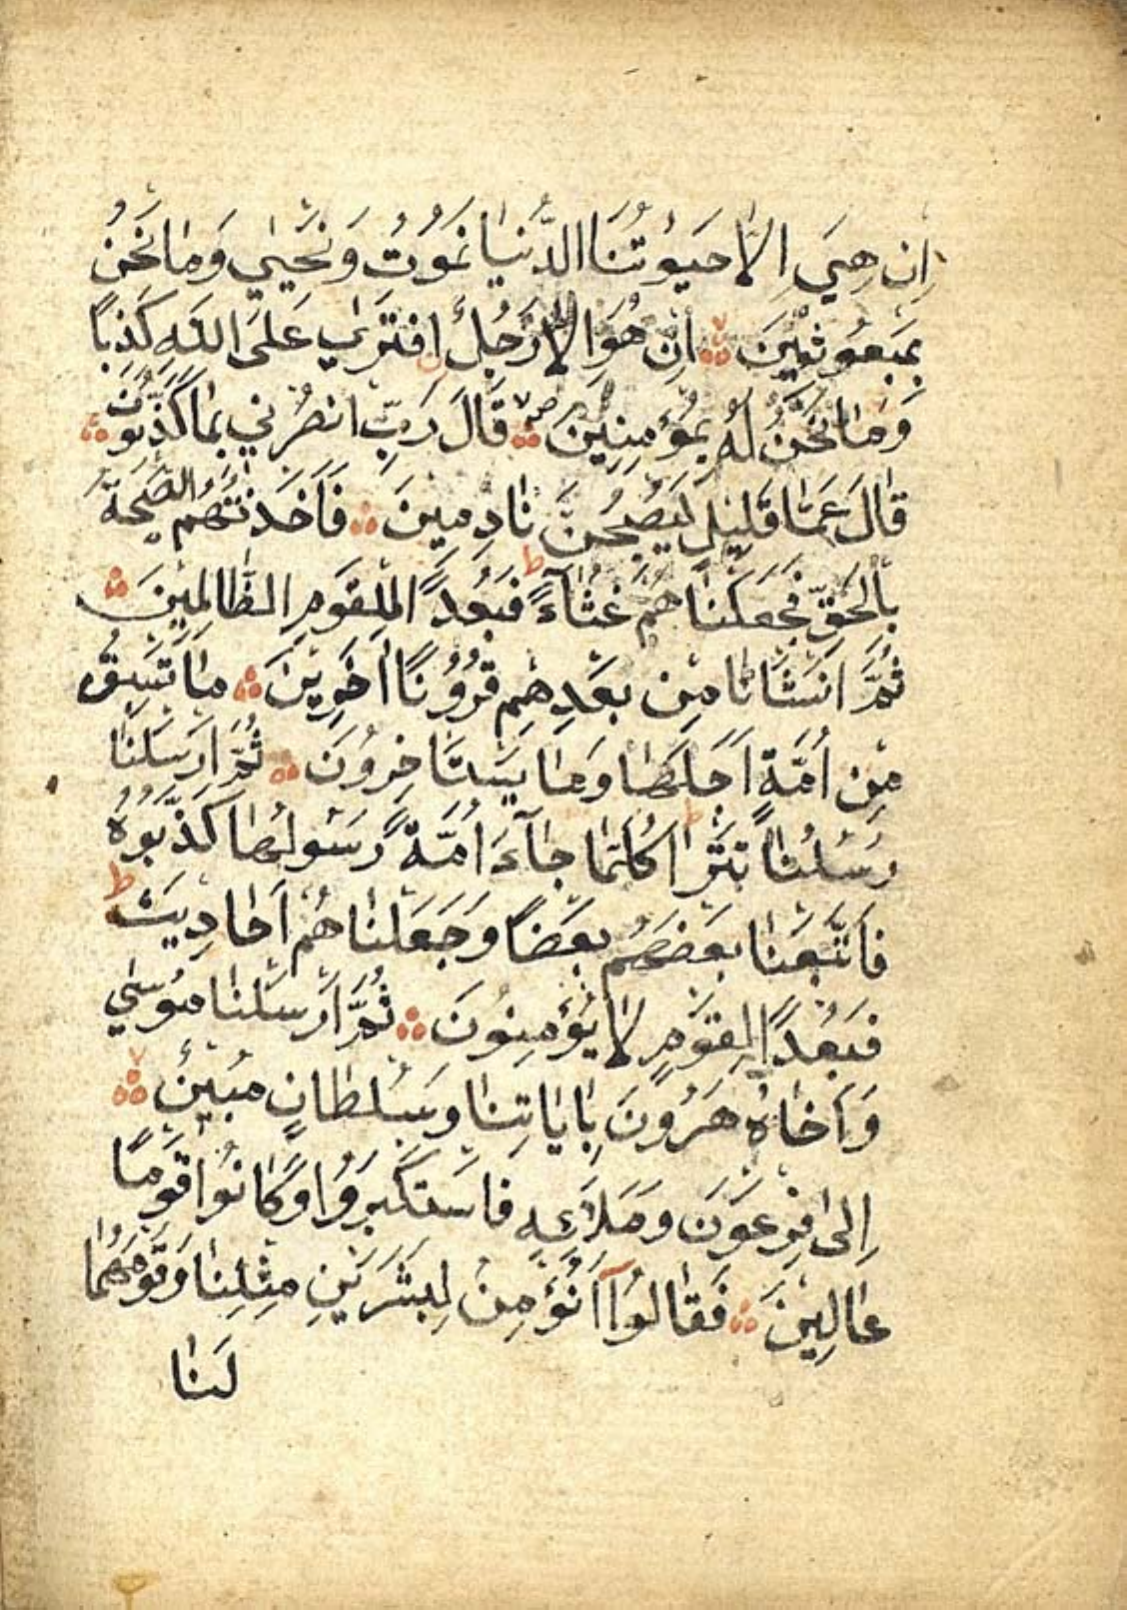 اِن هِيَ اِلاَّ حَيٰوتُنَا الدُّنيَا نَمُوتُ وَنَحْيٰي وَمَا نَحْنُ
بِمَبعُوثِيْنَ اِنْ هُوَ اِلاَّ رَجُلُ افتَرٰي عَلَى اللّٰهِ كَذِبًا
وَمَا نَحْنُ لَهُ بِمُؤمِنِيْنَ قَالَ رَبِّ انصُرْنِي بِمَا كَذَّبُونِ
قَالَ عَمَّا قَلِيْلٍ لَيُصْبِحُنَّ نَادِمِينَ فَاَخَذَتْهُمُ الصَّيحَةُ
بِالحَقِّ فَجَعَلْنَاهُمْ غُثَآءً فَبُعْدًا لِلقَومِ الظَّالِمِيْنَ
ثُمَّ انشَانَا مِن بعَدِهِم قُرُوْنًا اٰخَرِينَ مَا تَسْبِقُ
مِن اُمَّةٍ اَجَلَهَا وَمَا يَستَاخِرُونَ ثُمَّ اَرسَلْنَا
رُسُلَنَا تَتْرَا كُلَّمَا جَآءَ اُمَّةً رَسُولُهَا كَذَّبُوهُ
فَاَتْبَعنَا بَعضَهُم بَعضًا وَجَعَلنَاهُم اَحَادِيثَ
فَبُعْدًا لِقَوْمٍ لاَ يُؤْمِنُونَ ثُمَّ اَرْسَلنَا مُوسٰي
وَاَخَاهُ هَرُونَ بِاٰيَاتِنَا وَسُلطَانٍ مُبِيْنٍ
اِلىٰ فِرعَونَ وَمَلَائِهِ فَاسْتَكْبَرُوْا وَكَانُوا قَوْمًا
عَالِيْنَ فَقَالُوْآ اَنُؤْمِنُ لِبَشَرَيْنِ مِثْلِنَا وَقَومُهُمَا
لَنَا